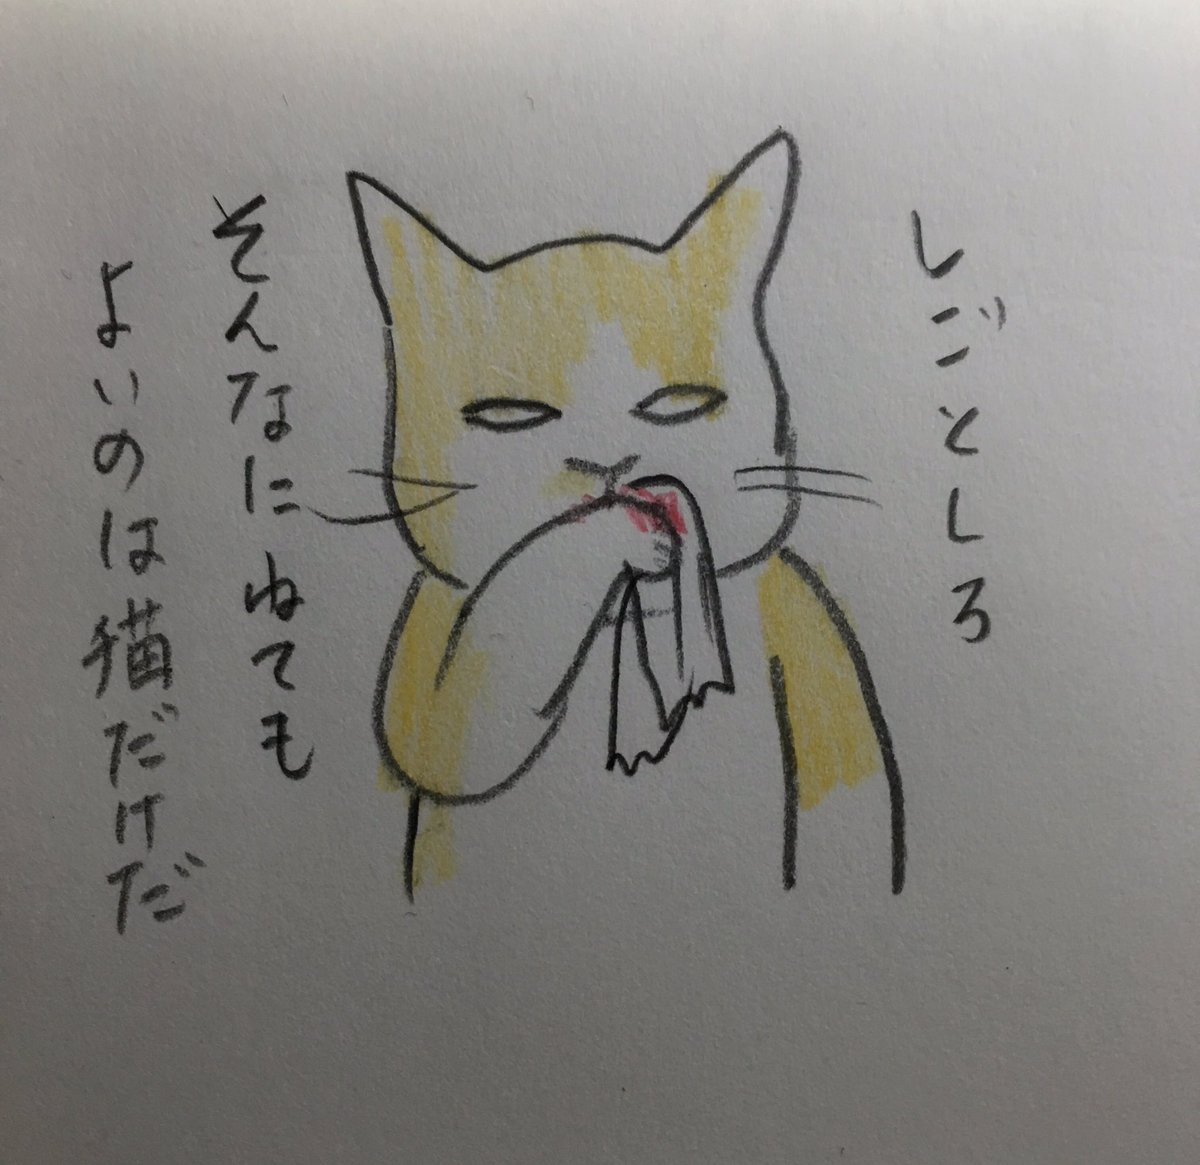 しごとしろ
そんなにねても
よいのは猫だけだ